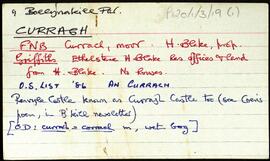 9 Ballynakill Par.
P120/1/3/19 (1)
CURRAGH
FNB Currach, moor. H. Blake, prop.
Griffiths Ethelstane H Blake has offices & land
from H. Blake. No houses.
O.S. LIST '86 AN CURRACH
Renvyle Castle known as Curragh Castle too (see
poem, in B'kill newsletter)
[O.D: currach = corrach m, wet bog]